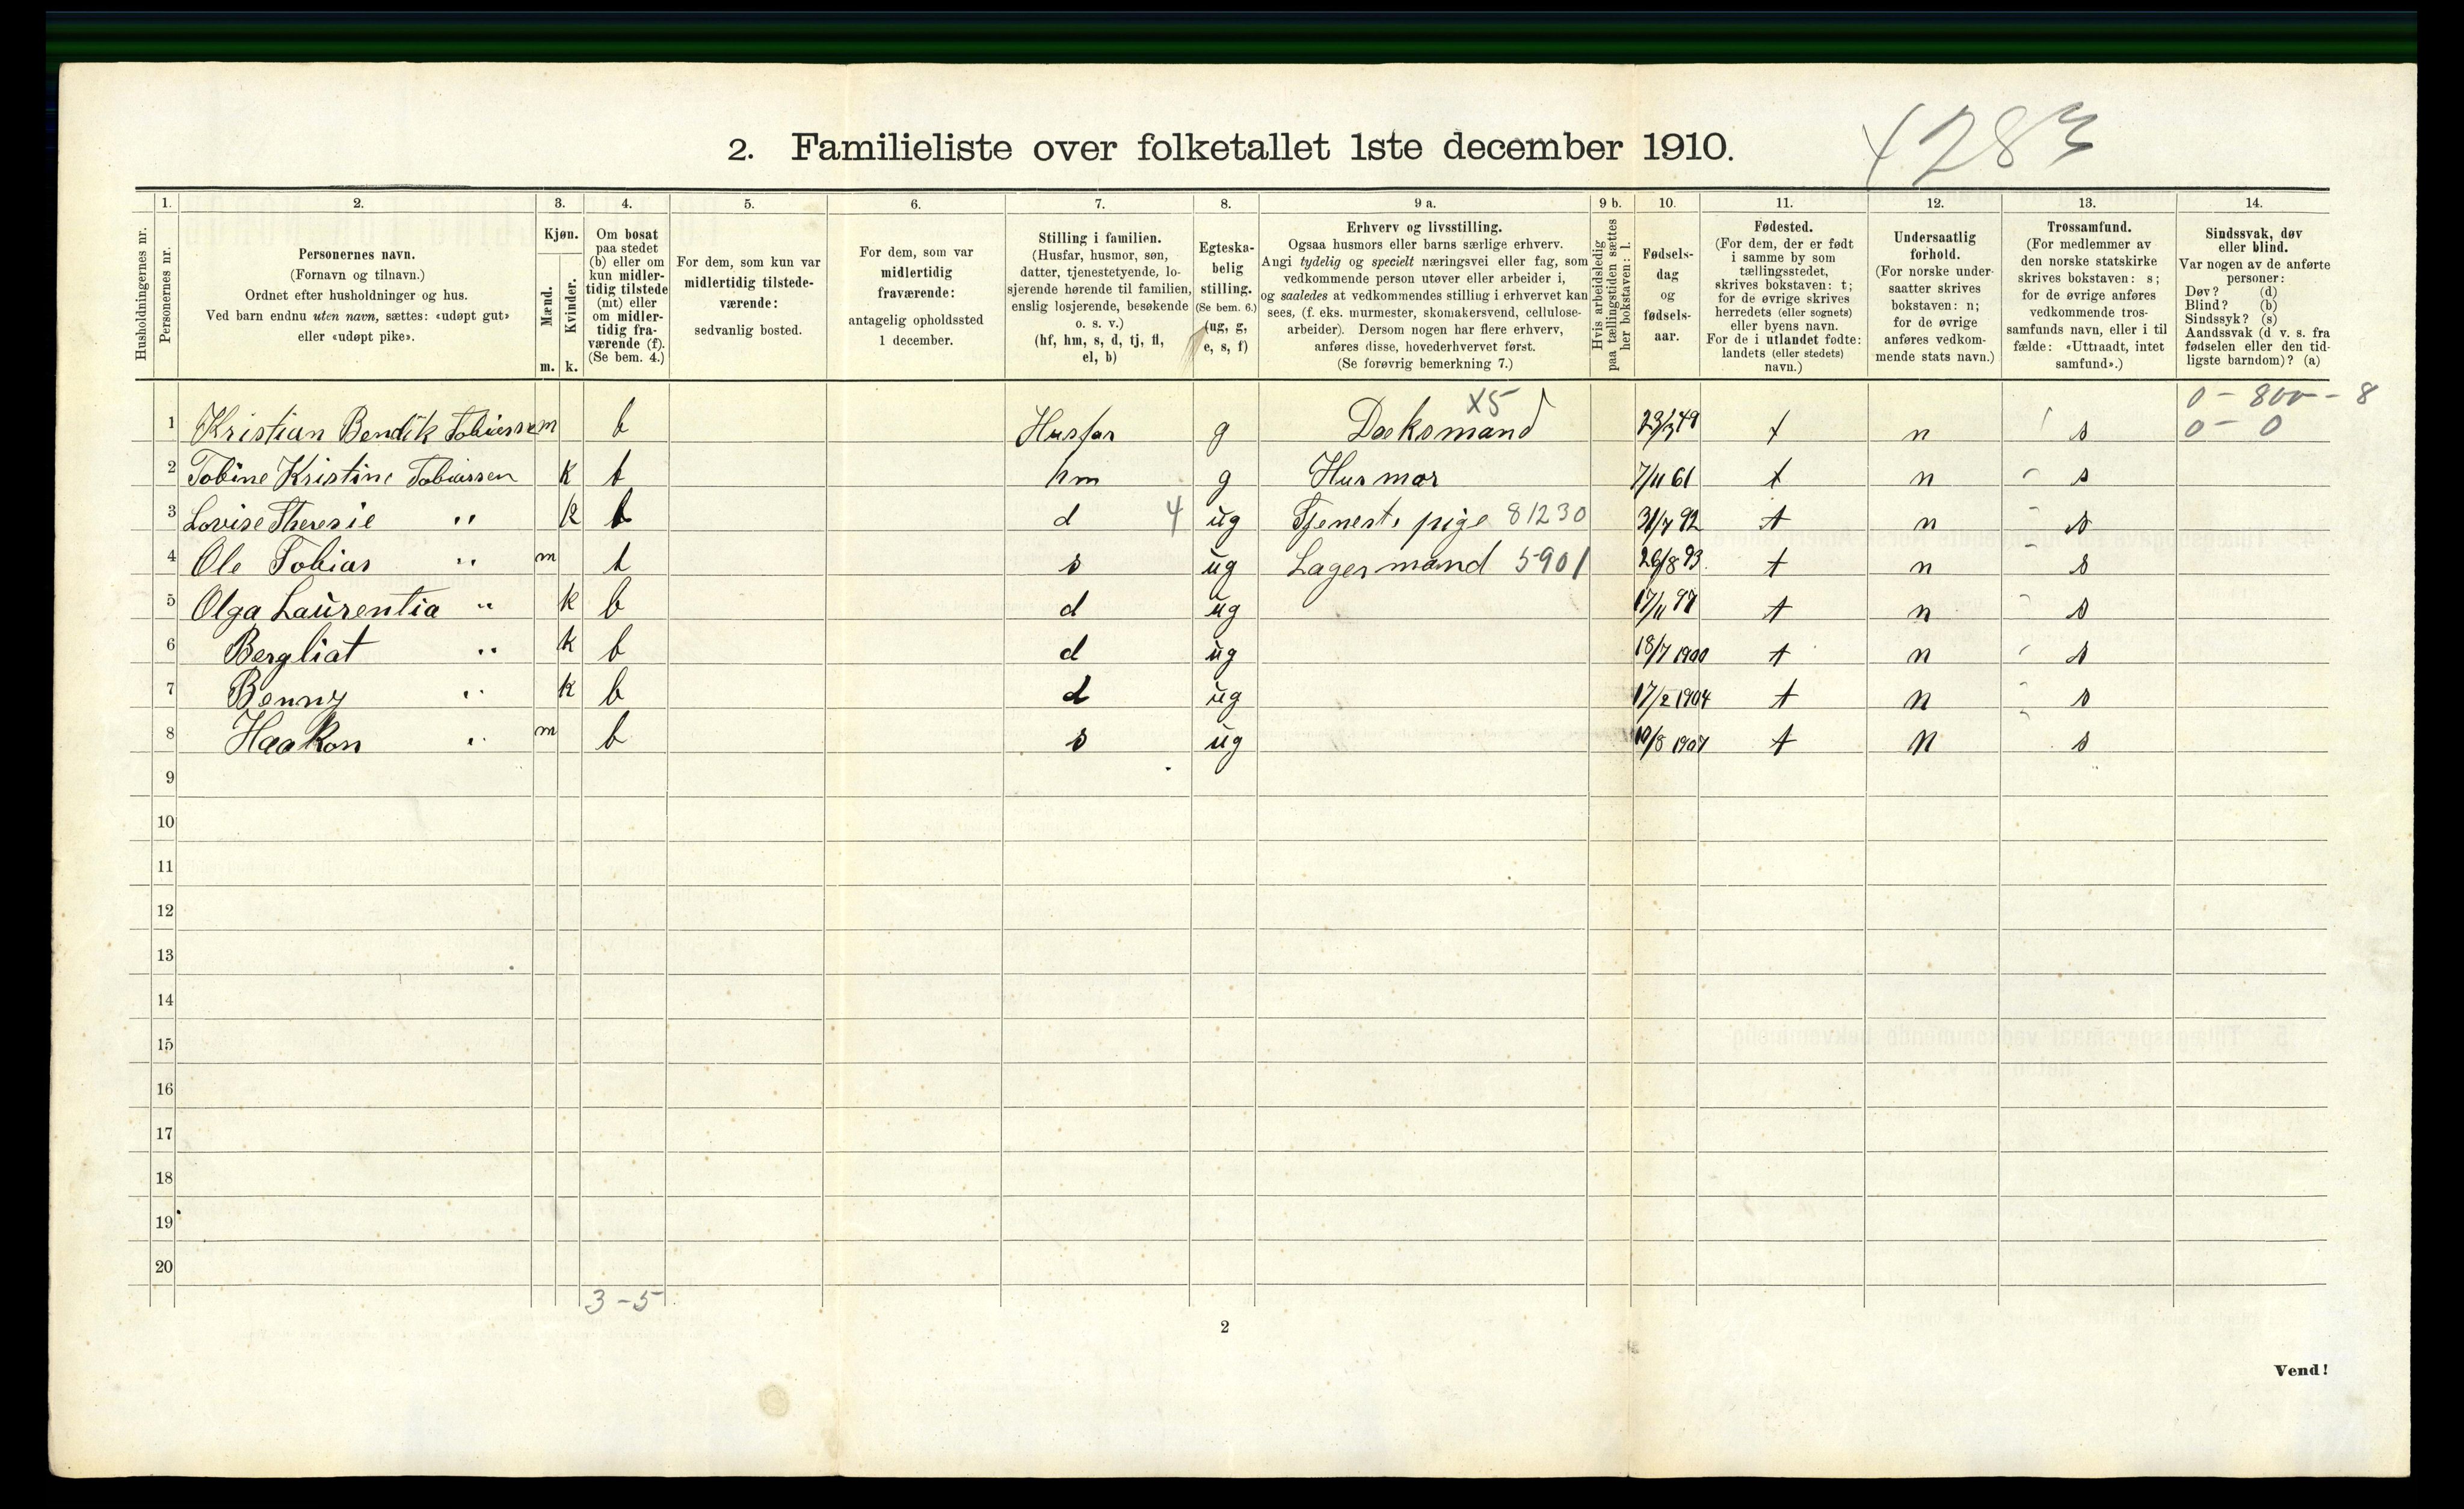 4283
2. Familieliste over folketallet 1ste december 1910.
Husholdningernes nr.
1.
Personernes nr.
2.
Personernes navn.
(Fornavn og tilnavn.)
Ordnet efter husholdninger og hus.
Ved barn endnu uten navn, sættes: «udøpt gut»
eller «udøpt pike».
3.
Kjøn.
Mænd.
Kvinder.
m. k.
4.
Om bosat
paa stedet
(b) eller om
kun midler-
tidig tilstede
(mt) eller
om midler-
tidig fra-
værende (f).
(Se bem. 4.)
5.
For dem, som kun var
midlertidig tilstede-
værende:
sedvanlig bosted.
6.
For dem, som var
midlertidig
fraværende:
antagelig opholdssted
1 december.
7.
Stilling i familien.
(Husfar, husmor, søn,
datter, tjenestetyende, lo-
sjerende hørende til familien,
enslig losjerende, besøkende
o. s. v.)
(hf, hm, s, d, tj, fl,
el, b)
8.
Egteska-
belig
stilling.
(Se bem. 6.)
(ug, g,
e, s, f)
9 a.
Erhverv og livsstilling.
Ogsaa husmors eller barns særlige erhverv.
Angi tydelig og specielt næringsvei eller fag, som
vedkommende person utøver eller arbeider i,
og saaledes at vedkommendes stilling i erhvervet kan
sees, (f. eks. murmester, skomakersvend, cellulose-
arbeider). Dersom nogen har flere erhverv,
anføres disse, hovederhvervet først.
(Se forøvrig bemerkning 7.)
9 b.
Hvis arbeidsledig
paa tællingstiden sættes
her bokstaven: l.
10.
Fødsels-
dag
og
fødsels-
aar.
11.
Fødested.
(For dem, der er født
i samme by som
tællingsstedet,
skrives bokstaven: t;
for de øvrige skrives
herredets (eller sognets)
eller byens navn.
For de i utlandet fødte:
landets (eller stedets)
navn.)
12.
Undersaatlig
forhold.
(For norske under-
saatter skrives
bokstaven: n;
for de øvrige
anføres vedkom-
mende stats navn.)
13.
Trossamfund.
(For medlemmer av
den norske statskirke
skrives bokstaven: s;
for de øvrige anføres
vedkommende tros-
samfunds navn, eller i til
fælde: «Uttraadt, intet
samfund».)
14.
Sindssvak, døv
eller blind.
Var nogen av de anførte
personer:
Døv? (d)
Blind? (b)
Sindssyk? (s)
Aandssvak (d. v. s. fra
fødselen eller den tid-
ligste barndom)? (a)
X5 0 - 800 - 8
1 Kristian Bendik Tobiassen m b Husfar g Dæksmand 23/3 49 t n s 0 - 0
2 Tobine Kristine Tobiassen k b hm g Husmor 7/11 61 t n s
3 Lovise Theresie " k b d 4 ug Tjeneste pige 81230 31/7 92 t n s
4 Ole Tobias " m b s ug Lagermand 5901 26/8 93 t n s
5 Olga Laurentia " k b d ug 17/11 97 t n s
6 Bergliat " k b d ug 18/7 1900 t n s
7 Benny " k b d ug 17/2 1904 t n s
8 Haakon " m b s ug 10/8 1907 t n s
9
10
11
12
13
14
15
16
17
18
19
20
3 - 5
2
Vend!